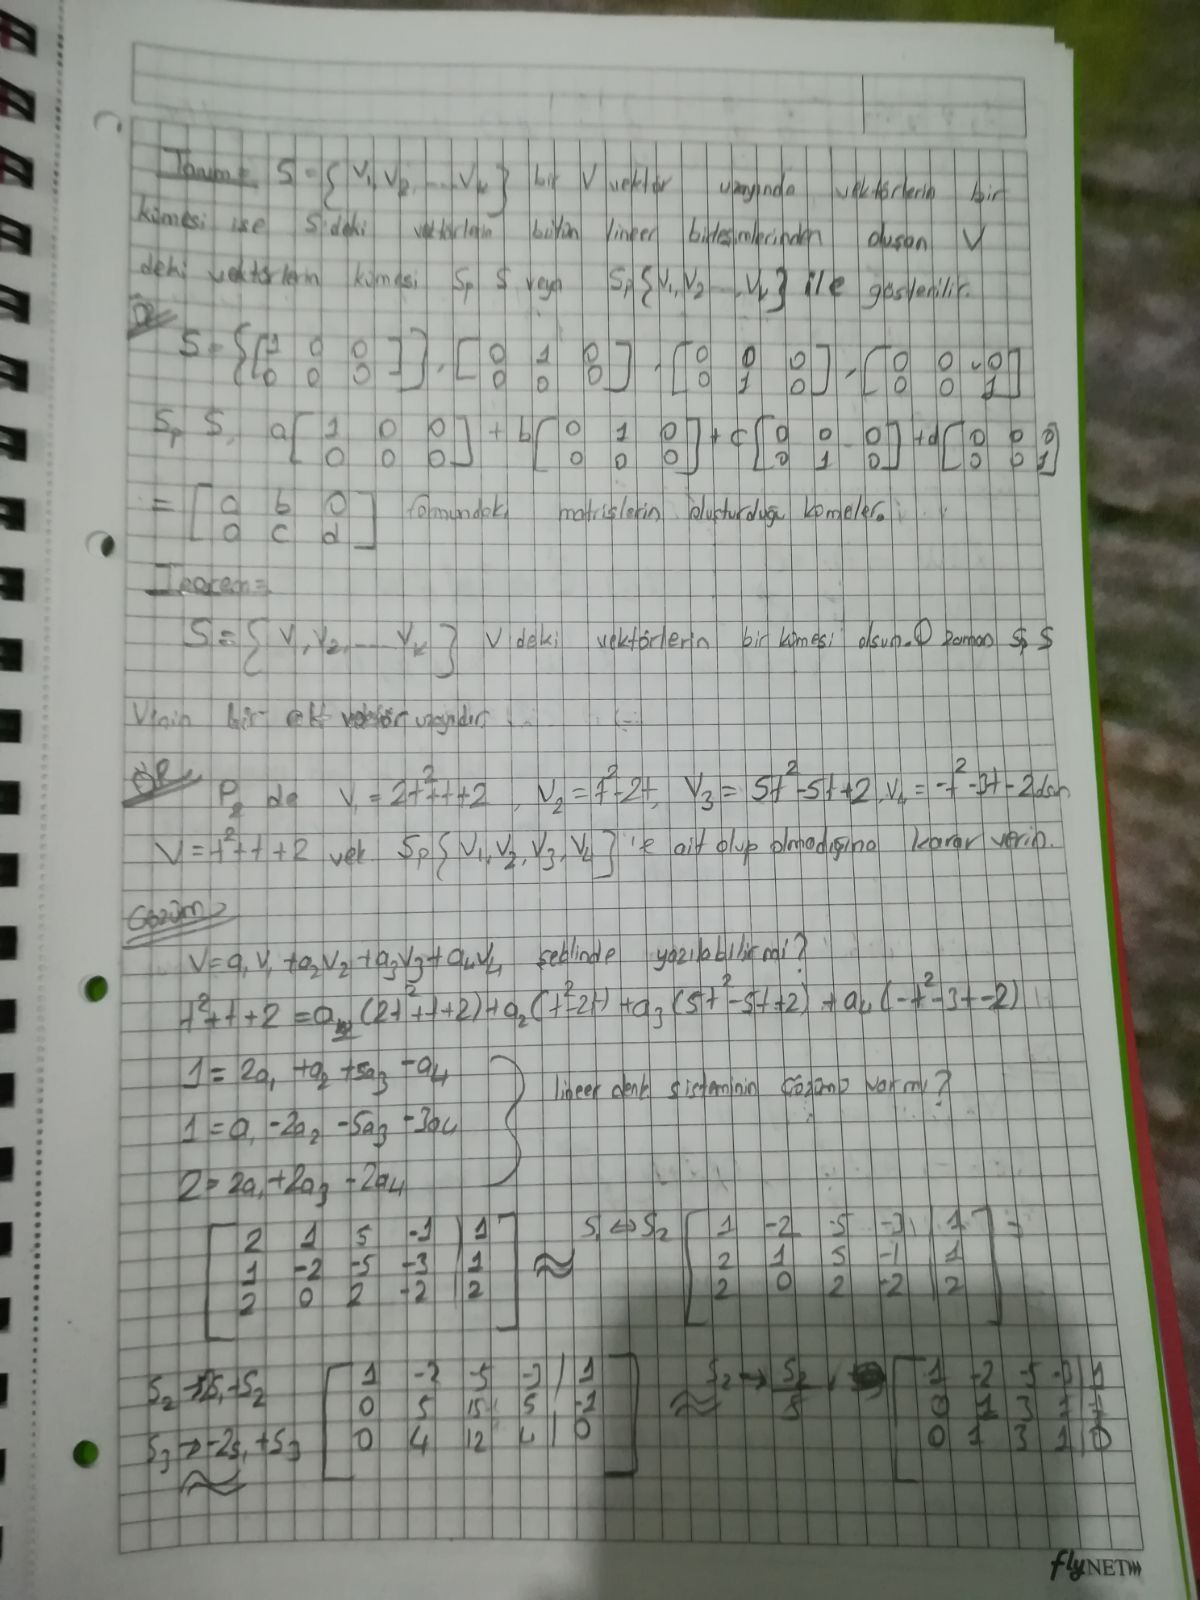 Tanım= S={V₁,V₂,...Vₖ} bir V vektör uzayında vektörlerin bir
kümesi ise S deki vektörlerin bütün lineer birleşimlerinden oluşan V
deki vektörlerin kümesi Sp S veya Sp{V₁,V₂...Vₖ} ile gösterilir.
S={[1 0 0; 0 0 0]}, [0 1 0; 0 0 0], [0 0 0; 0 1 0], [0 0 0; 0 0 1]
Sp S, a[1 0 0; 0 0 0] + b[0 1 0; 0 0 0] + c[0 0 0; 0 1 0] + d[0 0 0; 0 0 1]
= [a b 0; 0 c d] formundaki matrislerin oluşturduğu kümeler.
Teorem=
S={V₁,V₂,...Vₖ} V deki vektörlerin bir kümesi olsun. O zaman Sp S
V'nin bir alt vektör uzayıdır.
ÖR P₂ de V₁=2t²+t+2, V₂=t²-2t, V₃=5t²-5t+2, V₄=-t²-3t-2 dan
V=t²+t+2 vek Sp{V₁,V₂,V₃,V₄} 'e ait olup olmadığına karar verin.
Çözüm=
V=a₁V₁+a₂V₂+a₃V₃+a₄V₄ şeklinde yazılabilir mi?
t²+t+2=a₁(2t²+t+2)+a₂(t²-2t)+a₃(5t²-5t+2)+a₄(-t²-3t-2)
1=2a₁+a₂+5a₃-a₄
1=a₁-2a₂-5a₃-3a₄ lineer denk sisteminin çözümü var mı?
2=2a₁+2a₃-2a₄
[2 1 5 -1 | 1; 1 -2 -5 -3 | 1; 2 0 2 -2 | 2] ≈ S₁↔S₂ [1 -2 -5 -3 | 1; 2 1 5 -1 | 1; 2 0 2 -2 | 2]
S₂→ S₁+S₂ [1 -2 -5 -3 | 1; 0 5 15 5 | -1; 0 4 12 4 | 0] ≈ S₂→S₂/5 [1 -2 -5 -3 | 1; 0 1 3 1 | ; 0 1 3 1 | 0]
S₃→-2S₁+S₃
≈
flyNET